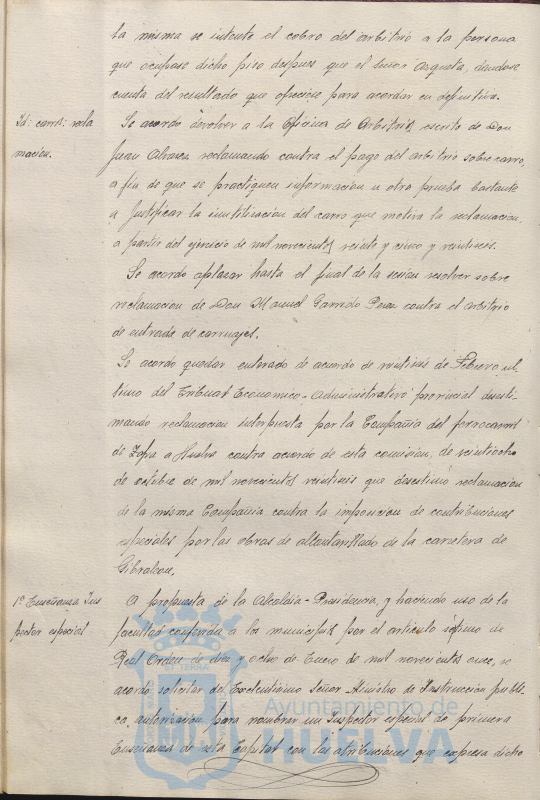 la misma se intente el cobro del arbitrio a la persona
que ocupase dicho piso despues que el Señor Arqueta, dandose
cuenta del resultado que ofreciese para acordar en definitiva.
Id: carros: recla
macion.
Se acordo devolver a la Oficina de Arbitrios, escrito de Don
Juan Alvarez reclamando contra el pago del arbitrio sobre carro,
a fin de que se practiquen informacion u otra prueba bastante
a Justificar la inutilizacion del carro que motiva la reclamacion,
a partir del ejercicio de mil novecientos veinte y cinco y veintiseis.
Se acordo aplazar hasta el final de la sesion resolver sobre
reclamacion de Don Manuel Garrido Perez contra el arbitrio
de entrada de carruajes.
Se acordo quedar enterado de acuerdo de veintiseis de Febrero ul-
timo del Tribunal Economico-Administrativo provincial desesti-
mando reclamacion interpuesta por la Compañia del ferrocarril
de Zafra a Huelva contra acuerdo de esta comision, de veintiocho
de octubre de mil novecientos veintiseis que desestimó reclamacion
de la misma Compañia contra la imposicion de contribuciones
especiales por las obras de alcantarillado de la carretera de
Gibraleon.
1ª Enseñanza Ins
pector especial
A propuesta de la Alcaldia-Presidencia, y haciendo uso de la
facultad conferida a los municipios por el articulo septimo de
Real Orden de diez y ocho de Enero de mil novecientos once, se
acordó solicitar del Excelentisimo Señor Ministro de Instrucción publi-
ca, autorizacion para nombrar un Inspector especial de primera
Enseñanza de esta Capital con las atribuciones que expresa dicho
Ayuntamiento de
HUELVA